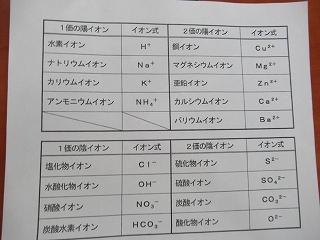 1価の陽イオン イオン式 2価の陽イオン イオン式
水素イオン H⁺ 銅イオン Cu²⁺
ナトリウムイオン Na⁺ マグネシウムイオン Mg²⁺
カリウムイオン K⁺ 亜鉛イオン Zn²⁺
アンモニウムイオン NH₄⁺ カルシウムイオン Ca²⁺
バリウムイオン Ba²⁺
1価の陽イオン イオン式 2価の陽イオン イオン式
塩化物イオン Cl⁻ 硫化物イオン S²⁻
水酸化物イオン OH⁻ 硫酸イオン SO₄²⁻
硝酸イオン NO₃⁻ 炭酸イオン CO₃²⁻
炭酸水素イオン HCO₃⁻ 酸化物イオン O²⁻